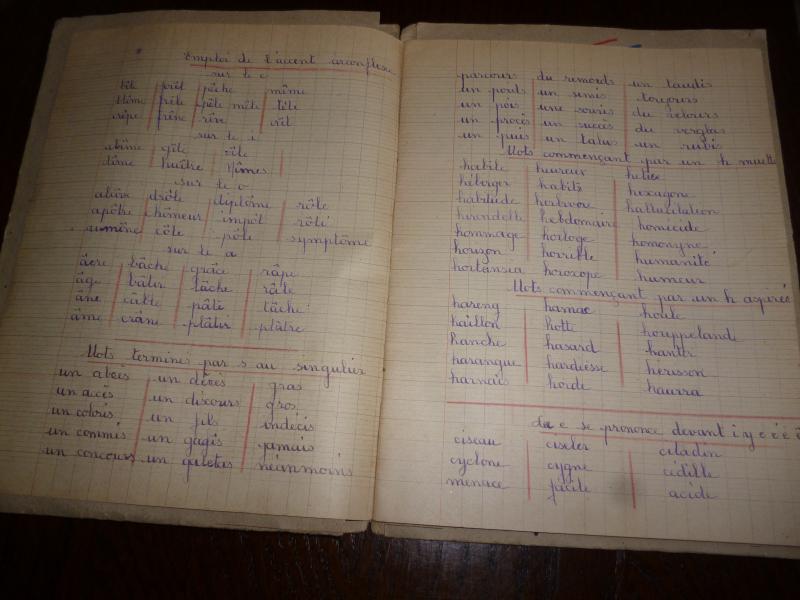 Emploi de l'accent circonflexe
sur le e
tête forêt pêche même
blême frêle pêle mêle tôle
crêpe frêne rêve
sur le i
abîme gîte
dîme huître Nîmes
sur le o
drôle diplôme rôle
apôtre chômeur impôt rôti
aumône côte pôle symptôme
sur le a
âcre bâche grâce râpe
âge bâtir lâche râle
âne câble pâte tâche
âme crâne plâtre
Mots terminés par s au singulier
un abcès un décès gras
un accès un discours gros
un coloris un fils indécis
un commis un gâgis jamais
un concours un galetas néanmoins
parcours du remords un taudis
un pouls un semis toujours
un pois une souris du velours
un procès un succès du verglas
un puis un talus un rubis
Mots commençant par un h muet
habile heureux hélice
héberger habits hexagone
habitude herbivore hallucilation
hirondelle hebdomaire homicide
hommage horloge homonyne
horizon horrible humanité
hortensia horoscope humeur
Mots commençant par un h aspirés
hareng hamac houle
haillon hotte houppelande
hanche hasard hantr
harangue hardiesse hérisson
harnais horde hourra
du c se prononce devant i y e é è ê
ciseau ciseler citadin
cyclone cygne cédille
menace facile acide